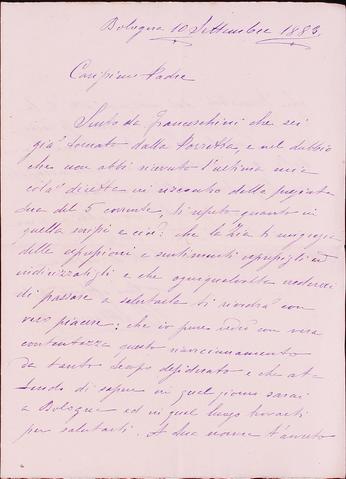 Bologna 10 Settembre 1883.
Carissimo Padre
Sento da Franceschini che sei
già tornato dalla Porretta, e nel dubbio
che non abbi ricevuto l'ultima mia
colà diretta in riscontro della pregiata
tua del 5 corrente, ti ripeto quanto in
quella scrissi e cioè: che la Zia ti ringrazia
delle espressioni e sentimenti
indirizzatigli e che ogniqualvolta
di passare a salutarla ti rivedrà con
vero piacere; che io pure vedrò con vera
contentezza questo riavvicinamento
da tanto tempo desiderato e che at-
tendo di sapere in qual giorno sarai
a Bologna ed in qual luogo trovarti
per salutarti. A due nuove t'avverto